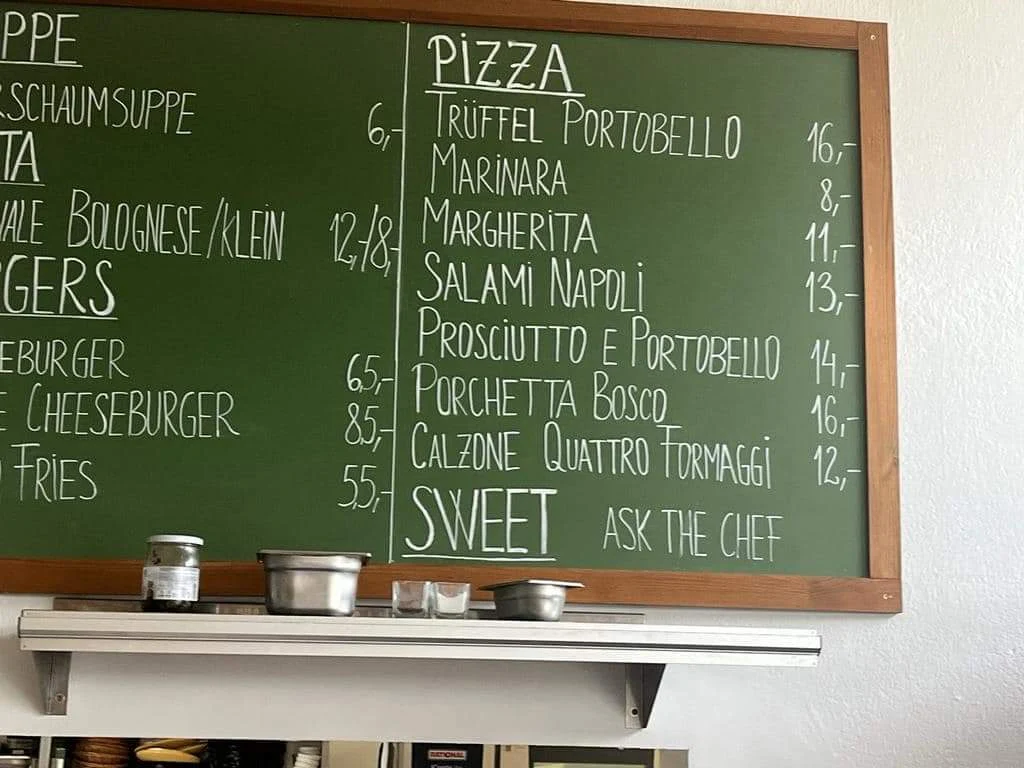 PPE
RSCHAUMSUPPE 6,-
TA
VALE BOLOGNESE/KLEIN 12,-/8,-
GERS
EBURGER 6,5,-
E CHEESEBURGER 8,5,-
FRIES 5,5,-
PIZZA
TRÜFFEL PORTOBELLO 16,-
MARINARA 8,-
MARGHERITA 11,-
SALAMI NAPOLI 13,-
PROSCIUTTO E PORTOBELLO 14,-
PORCHETTA BOSCO 16,-
CALZONE QUATTRO FORMAGGI 12,-
SWEET ASK THE CHEF
RATIONAL